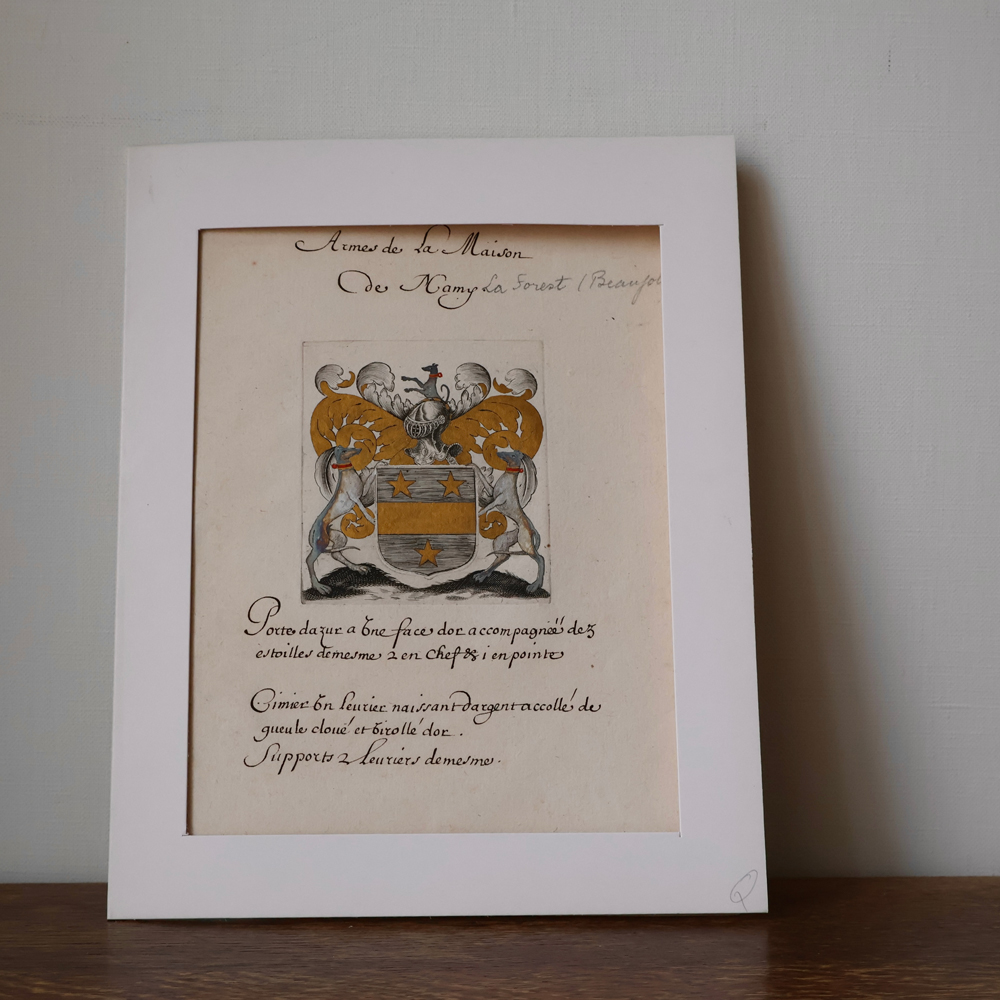 Armes de La Maison
De Namy La Forest (Beaujol
Porte dazur a Une face dor accompagnéé de 3
estoilles demesme 2 en chef & i en pointe
Cimier Un leurier naissant Dargent accollé de
gueule cloué et Virollé dor.
Supports 2 leuriers demesme.